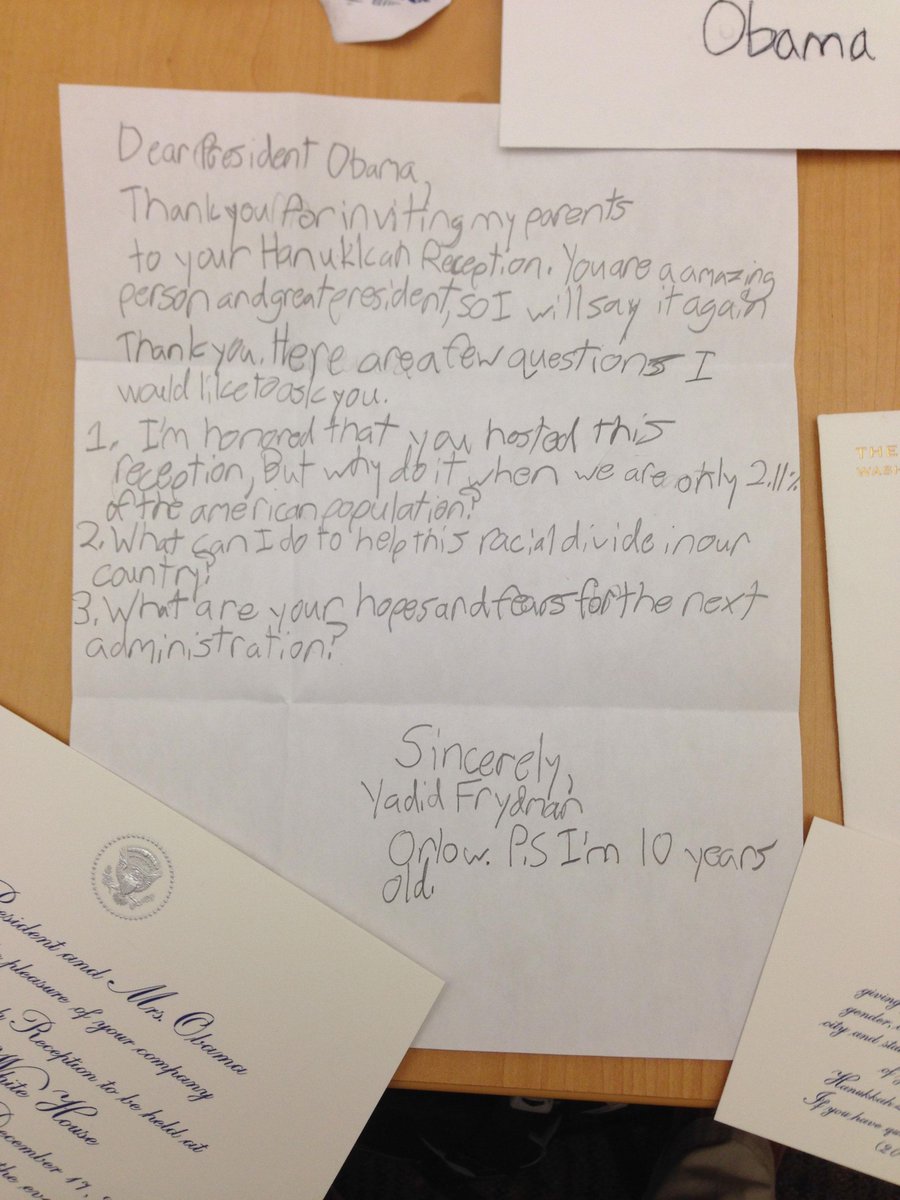 Obama
Dear President Obama,
Thank you for inviting my parents
to your Hanukkah Reception. You are a amazing
person and great president, so I will say it again
Thank you. Here are a few questions I
would like to ask you.
1. I'm honored that you hosted this
reception, But why do it when we are only 2.11%
of the american population?
2. What can I do to help this racial divide in our
country?
3. What are your hopes and fears for the next
administration?
Sincerely,
Yadid Frydman
Orlow. P.S I'm 10 years
old.
THE
WASH
resident and Mrs. Obama
pleasure of your company
Reception to be held at
White House
December 17,
the eve
giving
gender,
city and sta
of
Hanukkah
If you have qu
(20